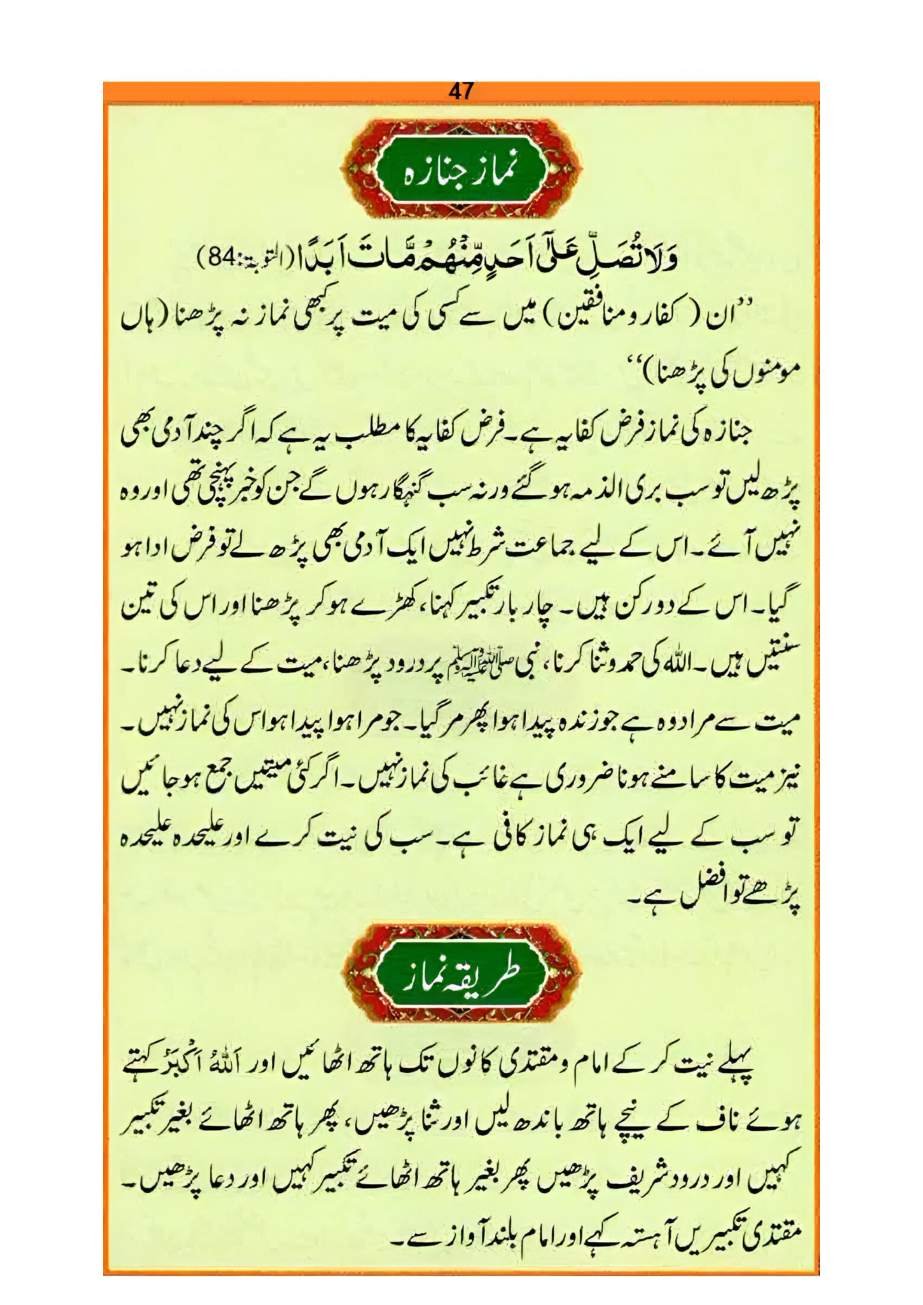 47
نماز جنازہ
وَلَا تُصَلِّ عَلٰٓى اَحَدٍ مِّنْهُمْ مَّاتَ اَبَدًا (التوبۃ:84)
’’ان (کفار و منافقین) میں سے کسی کی میت پر کبھی نماز نہ پڑھنا (ہاں
مومنوں کی پڑھنا)‘‘
جنازہ کی نماز فرض کفایہ ہے۔ فرض کفایہ کا مطلب یہ ہے کہ اگر چند آدمی بھی
پڑھ لیں تو سب بری الذمہ ہو گئے ورنہ سب گنہگار ہوں گے جن کو خبر پہنچی تھی اور وہ
نہیں آئے۔ اس کے لیے جماعت شرط نہیں ایک آدمی بھی پڑھ لے تو فرض ادا ہو
گیا۔ اس کے دو رکن ہیں۔ چار بار تکبیر کہنا، کھڑے ہو کر پڑھنا اور اس کی تین
سنتیں ہیں۔ اللہ کی حمد و ثنا کرنا، نبی ﷺ پر درود پڑھنا، میت کے لیے دعا کرنا۔
میت سے مراد وہ ہے جو زندہ پیدا ہوا پھر مر گیا۔ جو مرا ہوا پیدا ہوا اس کی نماز نہیں۔
نیز میت کا سامنے ہونا ضروری ہے غائب کی نماز نہیں۔ اگر کئی میتیں جمع ہو جائیں
تو سب کے لیے ایک ہی نماز کافی ہے۔ سب کی نیت کرے اور علیحدہ علیحدہ
پڑھے تو افضل ہے۔
طریقہ نماز
پہلے نیت کر کے امام و مقتدی کانوں تک ہاتھ اٹھائیں اور اَللهُ اَكْبَرُ کہتے
ہوئے ناف کے نیچے ہاتھ باندھ لیں اور ثنا پڑھیں، پھر ہاتھ اٹھائے بغیر تکبیر
کہیں اور درود شریف پڑھیں پھر بغیر ہاتھ اٹھائے تکبیر کہیں اور دعا پڑھیں۔
مقتدی تکبیریں آہستہ کہے اور امام بلند آواز سے۔